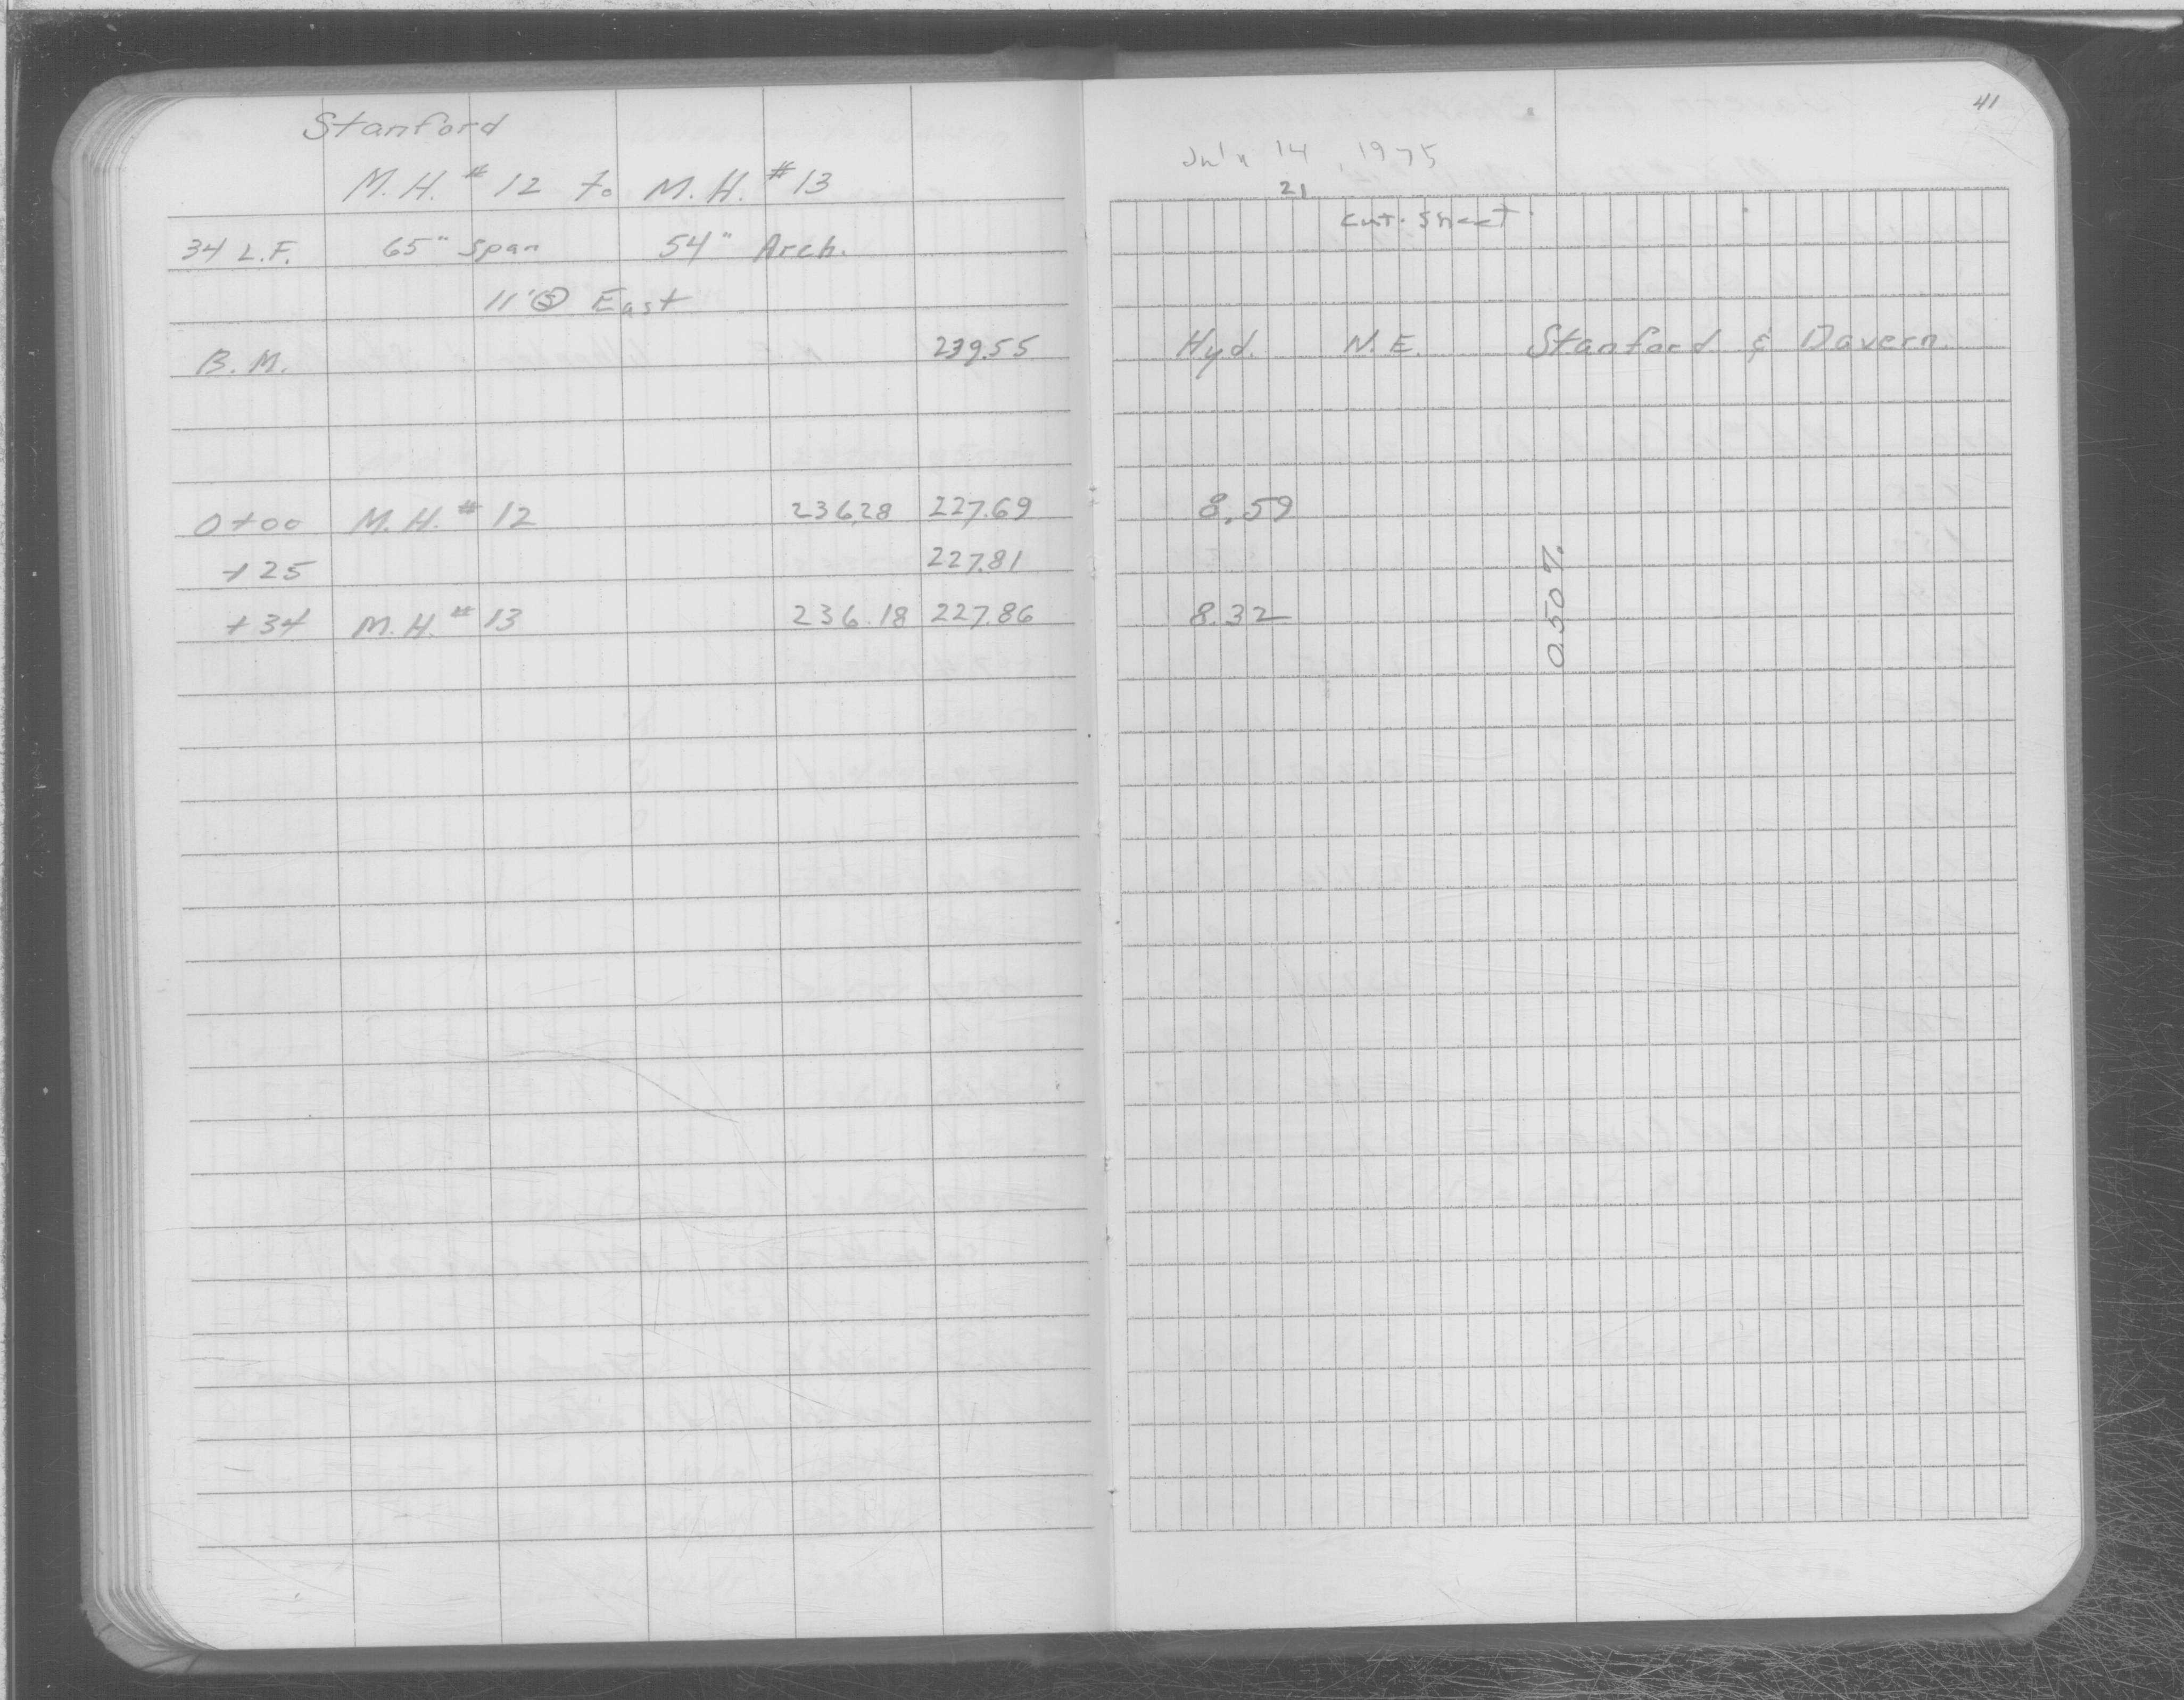 Stanford
M. H. # 12 to M. H. # 13
34 L.F. 65" Span 54" Arch.
11' Ⓢ East
B. M. 239.55
0+00 M. H. # 12 236.28 227.69
+25 227.81
+34 M. H. # 13 236.18 227.86
41
July 14, 1975
21
Cut Sheet
Hyd. N. E. Stanford & Davern.
8.59
8.32
0.50 %